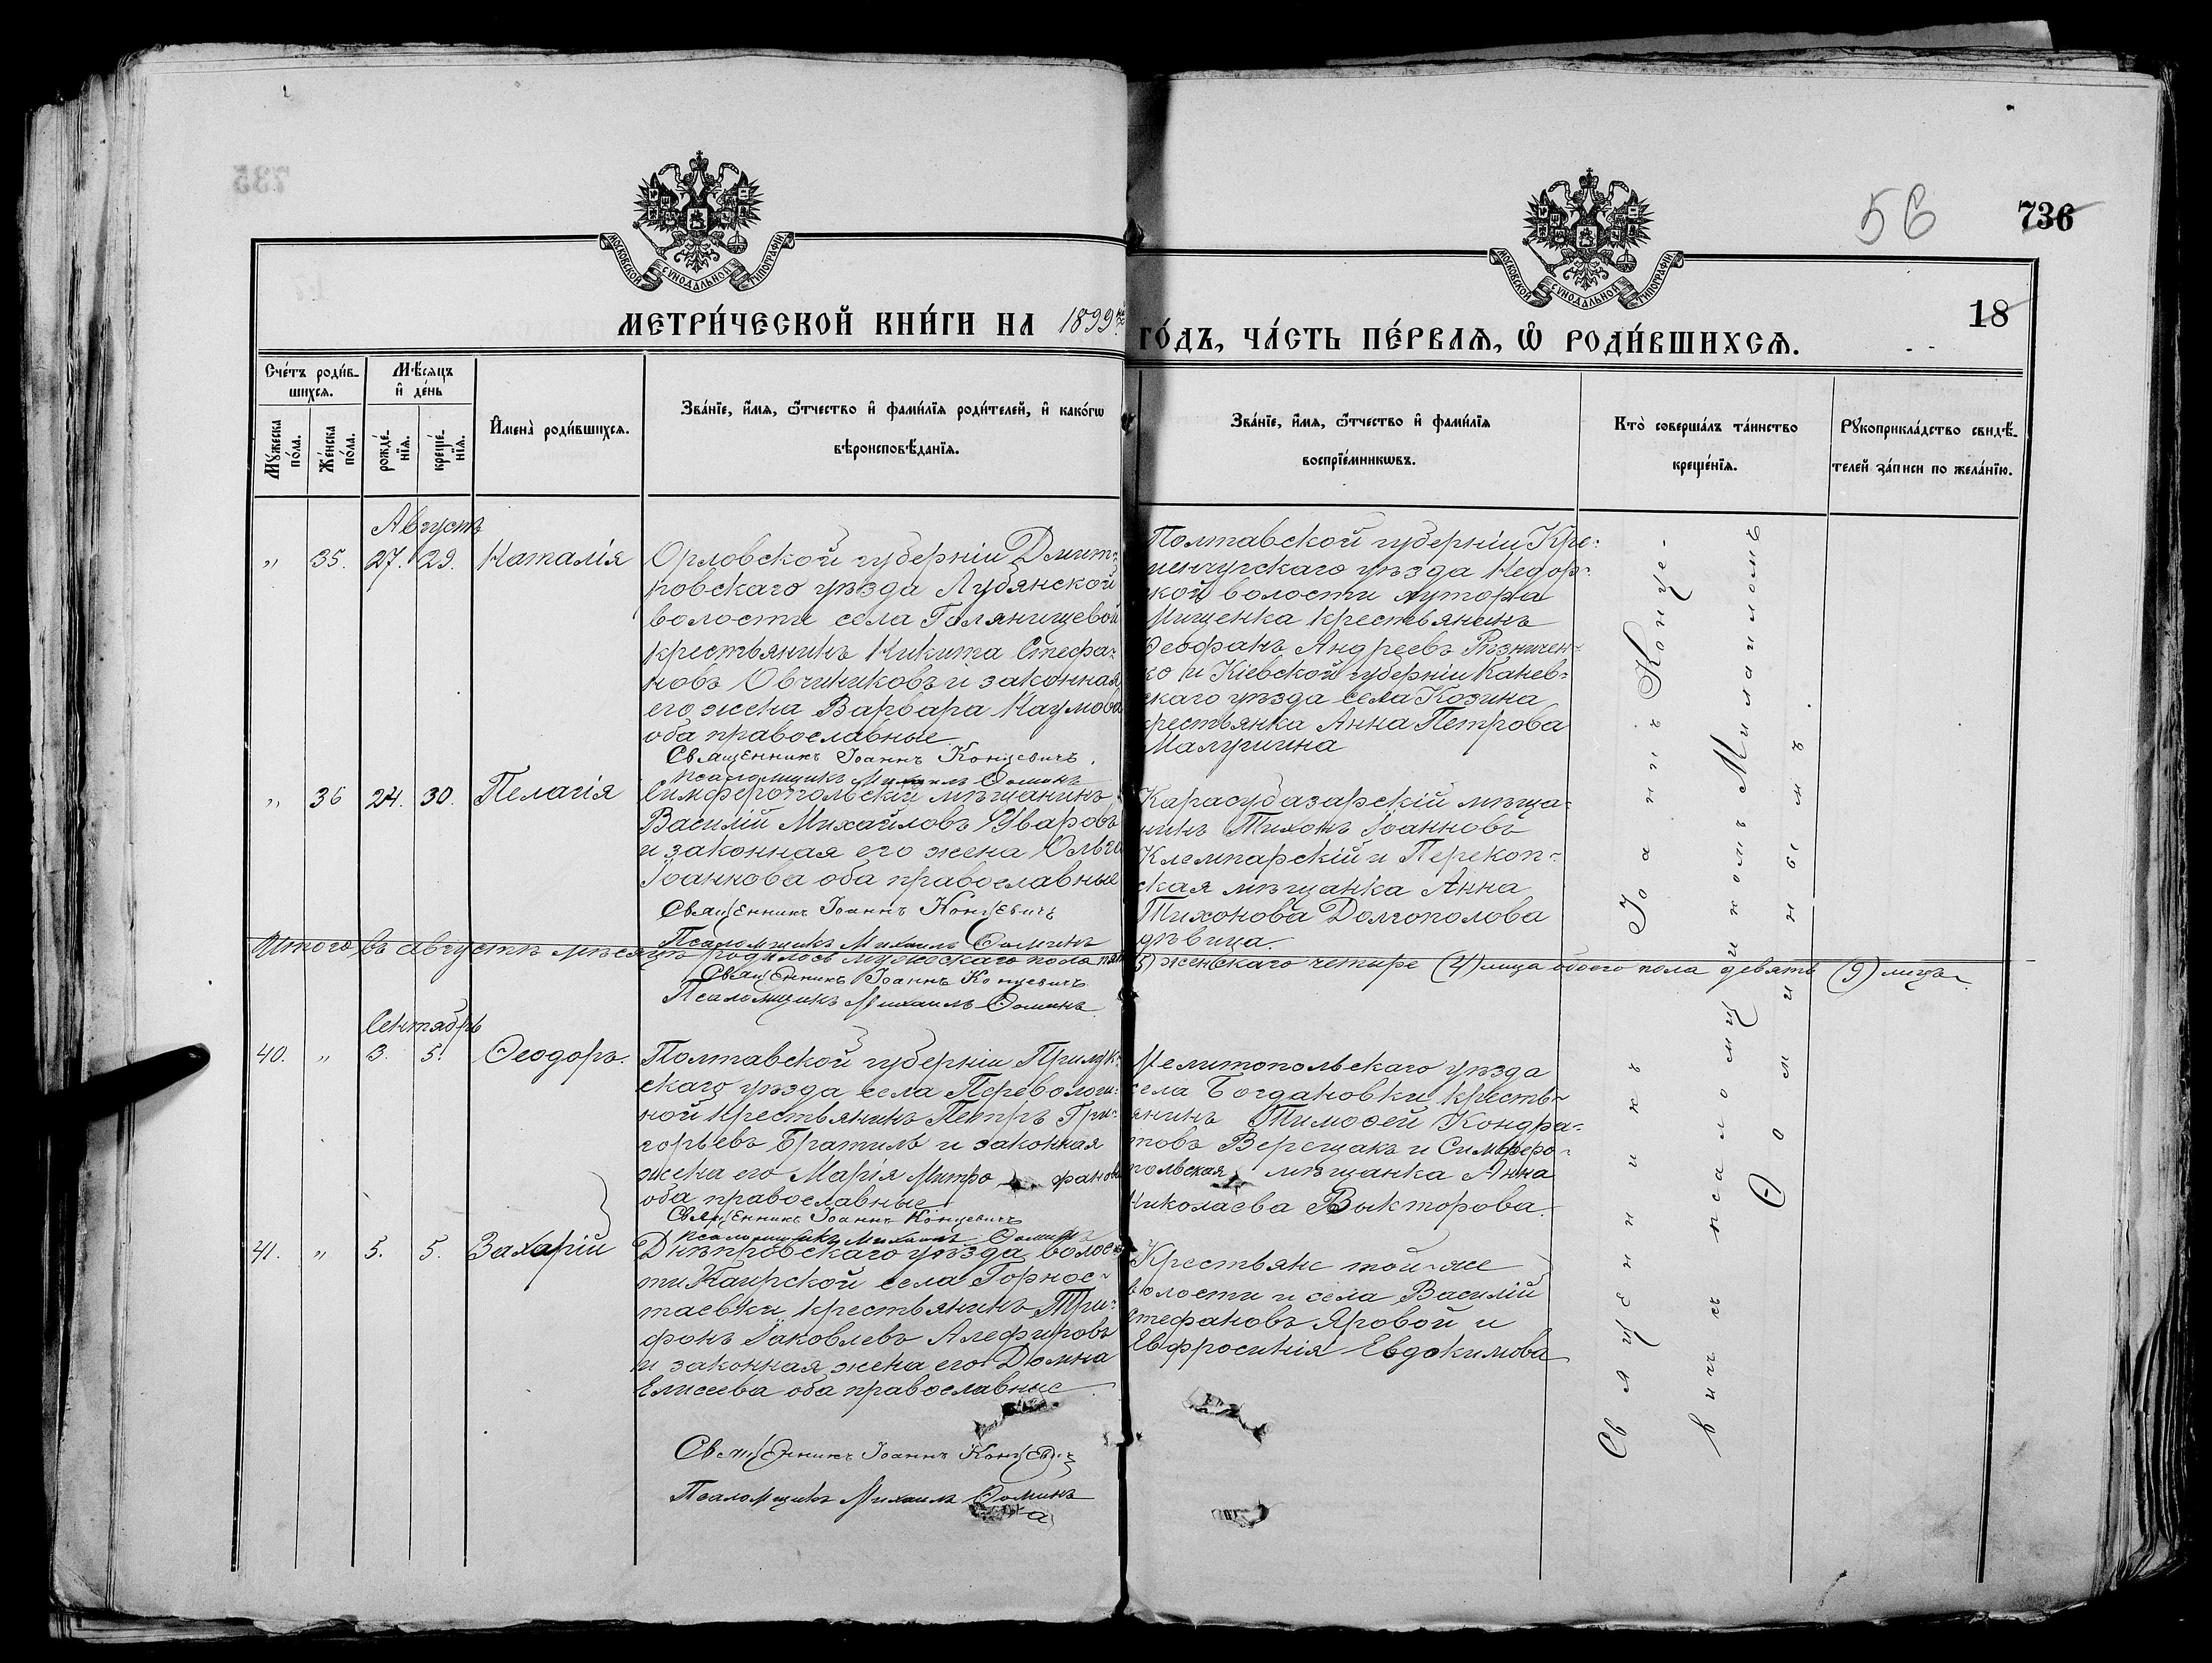 735
56
736
18
МОСКОВСКОЙ СѴНОДАЛЬНОЙ ТИПОГРАФІИ
МОСКОВСКОЙ СѴНОДАЛЬНОЙ ТИПОГРАФІИ
МЕТРИ́ЧЕСКОЙ КНИ́ГИ НА 1899й
ГО́ДЪ, ЧА́СТЬ ПЕ́РВАѦ, Ѽ РОДИ́ВШИХСѦ.
Сче́тъ роди́в-
шихсѧ.
Мѣ́сѧцъ
и҆ де́нь
Мꙋ́жеска
по́ла.
Же́нска
по́ла.
рожде́-
нїѧ.
креще́-
нїѧ.
И҆мена̀ роди́вшихсѧ.
Зва́нїе, и҆́мѧ, ѻ҆́тчество и҆ фами́лїѧ роди́телей, и҆ како́гѡ
вѣроисповѣ́данїѧ.
Зва́нїе, и҆́мѧ, ѻ҆́тчество и҆ фами́лїѧ
воспрїе́мникѡвъ.
Кто̀ соверша́лъ та́инство
креще́нїѧ.
Рꙋкоприкла́дство свидѣ́-
телей за́писи по жела́нїю.
Августъ
" 35. 27. 29. Наталія
Орловской губерніи Дмит-
ровскаго уѣзда Лубянской
волости села Голянищевой
крестьянинъ Никита Стефа-
новъ Овчиниковъ и законная
его жена Варвара Наумова
оба православные
Священникъ Іоаннъ Концевичъ.
Псаломщикъ Михаилъ Ѳоминъ
Полтавской губерніи Кре-
менчугскаго уѣзда Недор-
кой волости хутора
Мищенка крестьянинъ
Ѳеофанъ Андреевъ Рѣзничен-
ко и Кіевской губерніи Канев-
скаго уѣзда села Козина
крестьянка Анна Петрова
" 36 24. 30. Пелагія
Симферопольскій мѣщанинъ
Василій Михайловъ Уваровъ
и законная его жена Ольга
Іоаннова оба православные
Священникъ Іоаннъ Концевичъ
Псаломщикъ Михаилъ Ѳоминъ
Карасубазарскій мѣща-
нинъ Тихонъ Іоанновъ
и Перекоп-
ская мѣщанка Анна
Тихонова Долгополова
дѣвица.
Итого въ августѣ мѣсяцѣ родилось мужескаго пола пять (5) женскаго четыре (4) лица обоего пола девять (9) лицъ
Священникъ Іоаннъ Концевичъ
Псаломщикъ Михаилъ Ѳоминъ
Сентябрь
40. " 3. 5. Ѳеодоръ.
Полтавской губерніи Прилук-
скаго уѣзда села Переволоч-
ной крестьянинъ Петръ Гри-
горьевъ Братиль и законная
жена его Марія Митрофанова
оба православные
Священникъ Іоаннъ Концевичъ
Псаломщикъ Михаилъ Ѳоминъ
Мелитопольскаго уѣзда
села Богдановки кресть-
янинъ Тимоѳей Кондра-
товъ Верещакъ и Симферо-
польская мѣщанка Анна
Николаева Выкторова.
41. " 5. 5. Захарій
Днѣпровскаго уѣзда волос-
ти Каирской села Горнос-
таевки крестьянинъ Три-
фонъ Іаковлевъ Алефировъ
и законная жена его Домна
Елисеева оба православные
Священникъ Іоаннъ Концевичъ
Псаломщикъ Михаилъ Ѳоминъ
Крестьяне той-же
волости и села Василій
Стефановъ Яровой и
Евфросинія Евдокимова
Священникъ Іоаннъ Конце-
вичъ съ псаломщикомъ Михаиломъ
Ѳоминымъ.